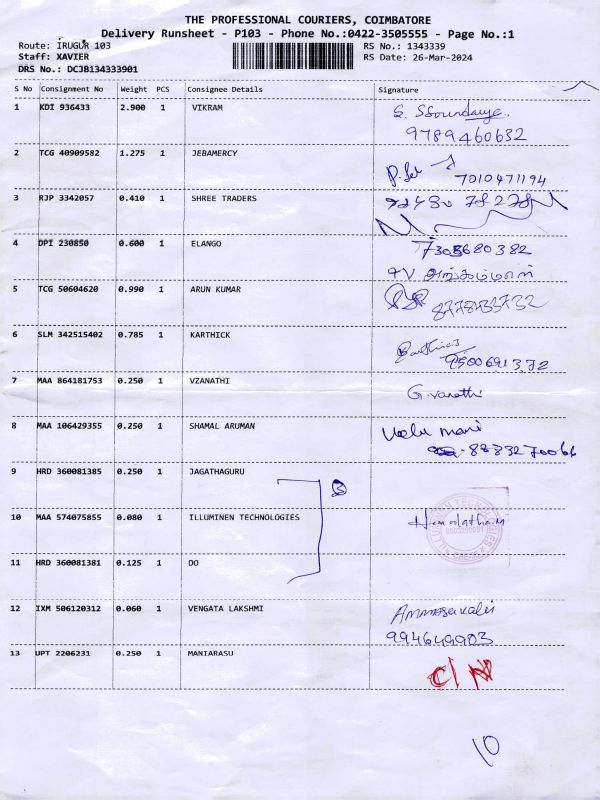 THE PROFESSIONAL COURIERS, COIMBATORE
Delivery Runsheet - P103 - Phone No.:0422-3505555 - Page No.:1
Route: IRUGUR 103 RS No.: 1343339
Staff: XAVIER RS Date: 26-Mar-2024
DRS No.: DCJB134333901
S No Consignment No Weight PCS Consignee Details Signature
1 KDI 936433 2.900 1 VIKRAM
9789460632
2 TCG 40909582 1.275 1 JEBAMERCY
7010471194
3 RJP 3342057 0.410 1 SHREE TRADERS
4 DPI 230850 0.600 1 ELANGO
5 TCG 50604620 0.990 1 ARUN KUMAR
6 SLM 342515402 0.785 1 KARTHICK
7 MAA 864181753 0.250 1 VZANATHI G. Vanathi
8 MAA 106429355 0.250 1 SHAMAL ARUMAN Velu mani
8883270066
9 HRD 360081385 0.250 1 JAGATHAGURU
3
10 MAA 574075855 0.080 1 ILLUMINEN TECHNOLOGIES
11 HRD 360081381 0.125 1 DO
12 IXM 506120312 0.060 1 VENGATA LAKSHMI
994649903
13 UPT 2206231 0.250 1 MANIARASU
10